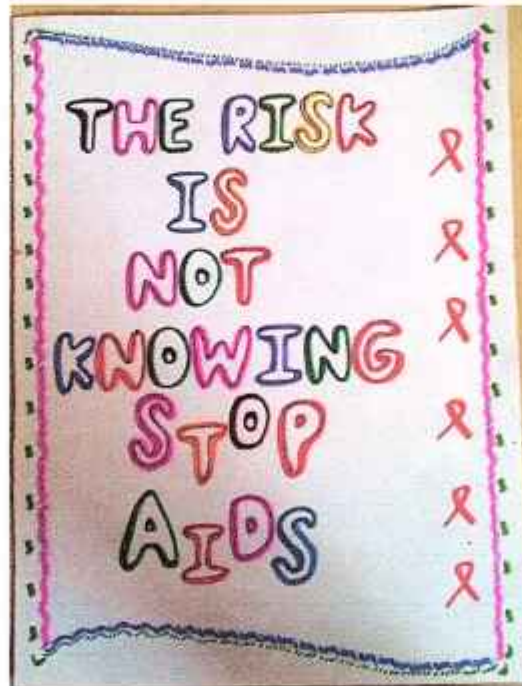 THE RISK
IS
NOT
KNOWING
STOP
AIDS